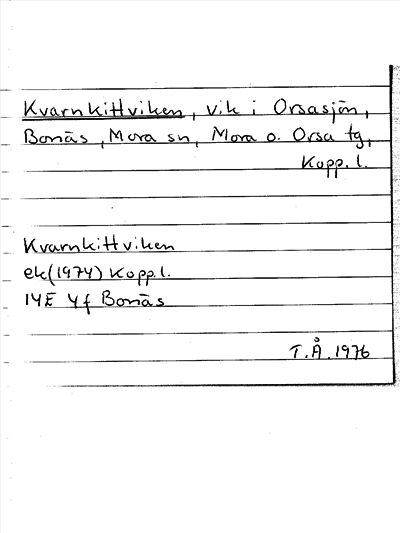 Kvarnkittviken, vik i Orsasjön,
Bonäs, Mora sn, Mora o. Orsa tg,
Kopp. l.
Kvarnkittviken
ek (1974) Kopp. l.
14E 4f Bonäs
T.Å. 1976